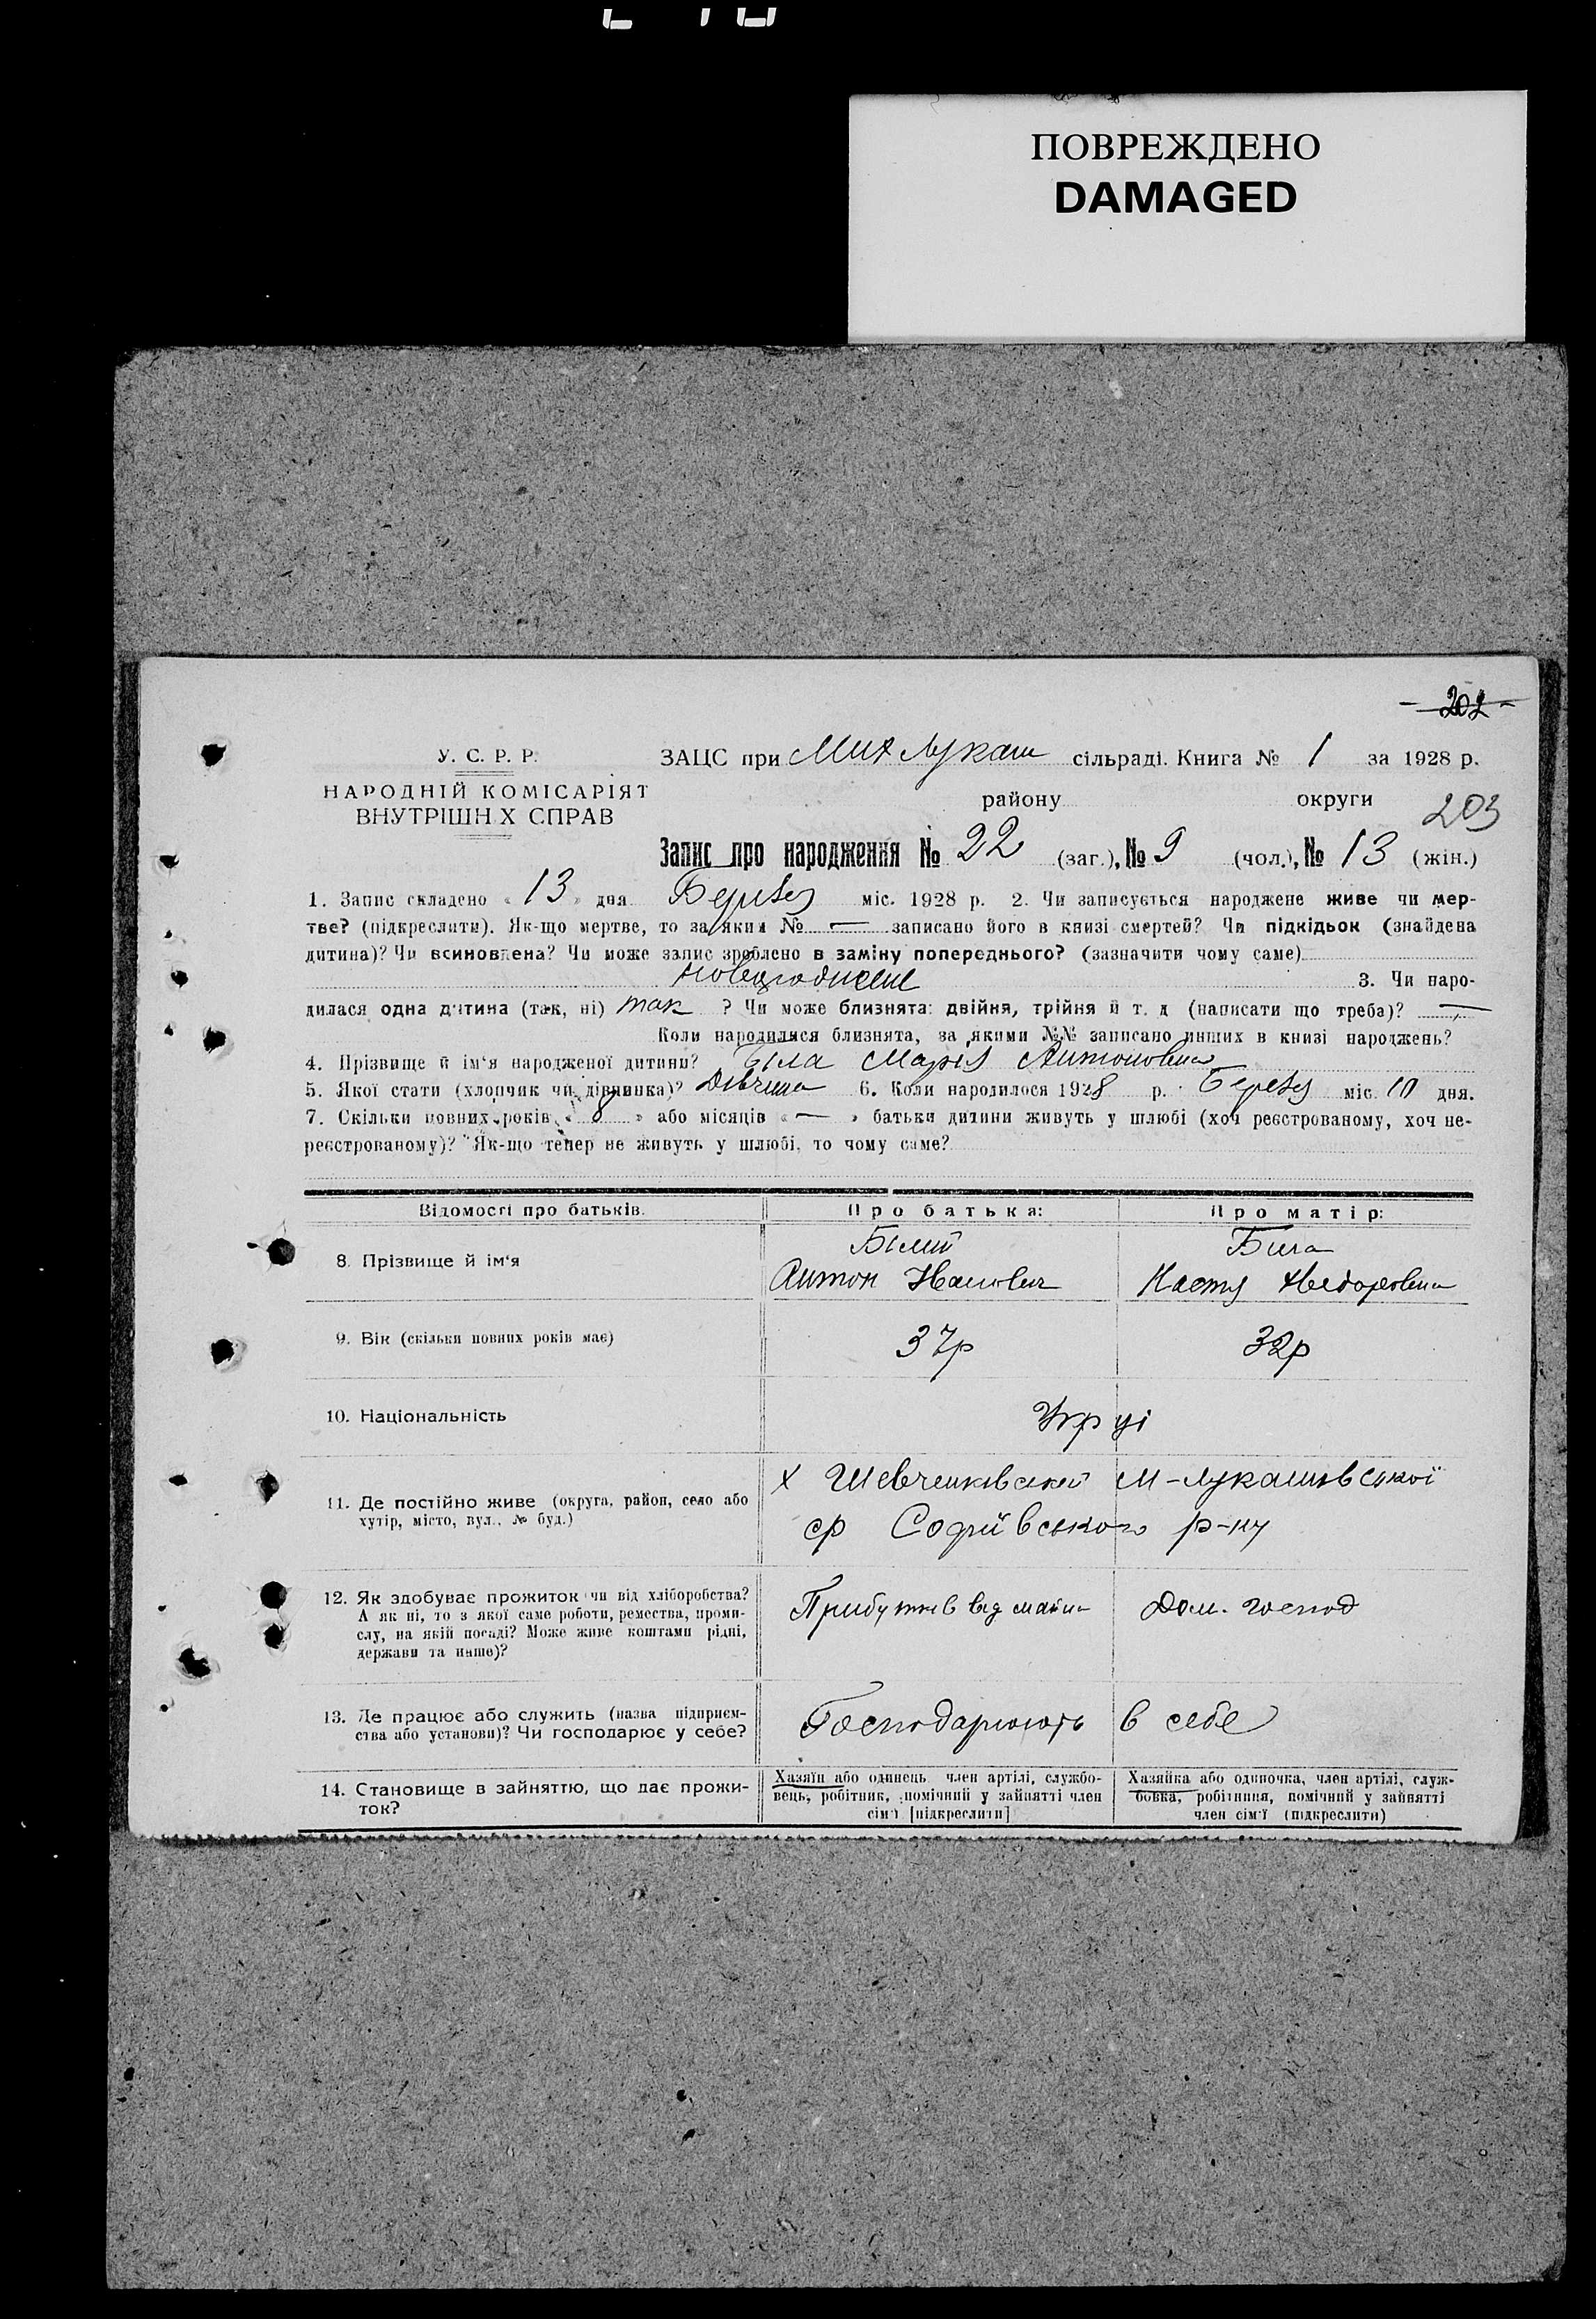 ПОВРЕЖДЕНО
DAMAGED
202
У. С. Р. Р.
НАРОДНІЙ КОМІСАРІЯТ
ВНУТРІШН Х СПРАВ
ЗАЦС при Мих Лукаш сільраді. Книга № 1 за 1928 р.
району округи
203
Запис про народження № 22 (заг.), № 9 (чол.), № 13 (жін.)
1. Запис складено « 13 » дня Березня міс. 1928 р. 2. Чи записується народжене живе чи мер-
тве? (підкреслити). Як-що мертве, то за яким № — записано його в книзі смертей? Чи підкідьок (знайдена
дитина)? Чи всиновлена? Чи може запис зроблено в заміну попереднього? (зазначити чому саме)
3. Чи наро-
дилася одна дитина (так, ні) так ? Чи може близнята: двійня, трійня й т. д (написати що треба)? —
Коли народилися близнята, за якими №№ записано инших в книзі народжень?
4. Прізвище й ім'я народженої дитини? Біла Марія Антоновна
5. Якої стати (хлопчик чи дівчинка)? Дівчина 6. Коли народилося 1928 р. Березня міс. 10 дня.
7. Скільки повних років « 8 » або місяців « — » батьки дитини живуть у шлюбі (хоч реєстрованому, хоч не-
реєстрованому)? Як-що тепер не живуть у шлюбі, то чому саме?
Відомості про батьків. Про батька: Про матір:
8. Прізвище й ім'я Білий Біла
Антон Іванович Настя Федоровна
9. Вік (скільки повних років має) 37р 32р
10. Національність Укр ці
11. Де постійно живе (округа, район, село або
хутір, місто, вул., № буд.)
х Шевченківський М-Лукашівської
ср Софіївського р-ну
12. Як здобуває прожиток чи від хліборобства?
А як ні, то з якої саме роботи, ремества, проми-
слу, на якій посаді? Може живе коштами рідні,
держави та инше)?
від майна Дом. господ
13. Де працює або служить (назва підприєм-
ства або установи)? Чи господарює у себе?
Господарюють в себе
14. Становище в зайняттю, що дає прожи-
ток?
Хазяїн або одинець член артілі, службо-
вець, робітник, помічний у зайнятті член
сім'ї [підкреслити]
Хазяйка або одиночка, член артілі, служ-
бовка, робітниця, помічний у зайнятті
член сім'ї (підкреслити)